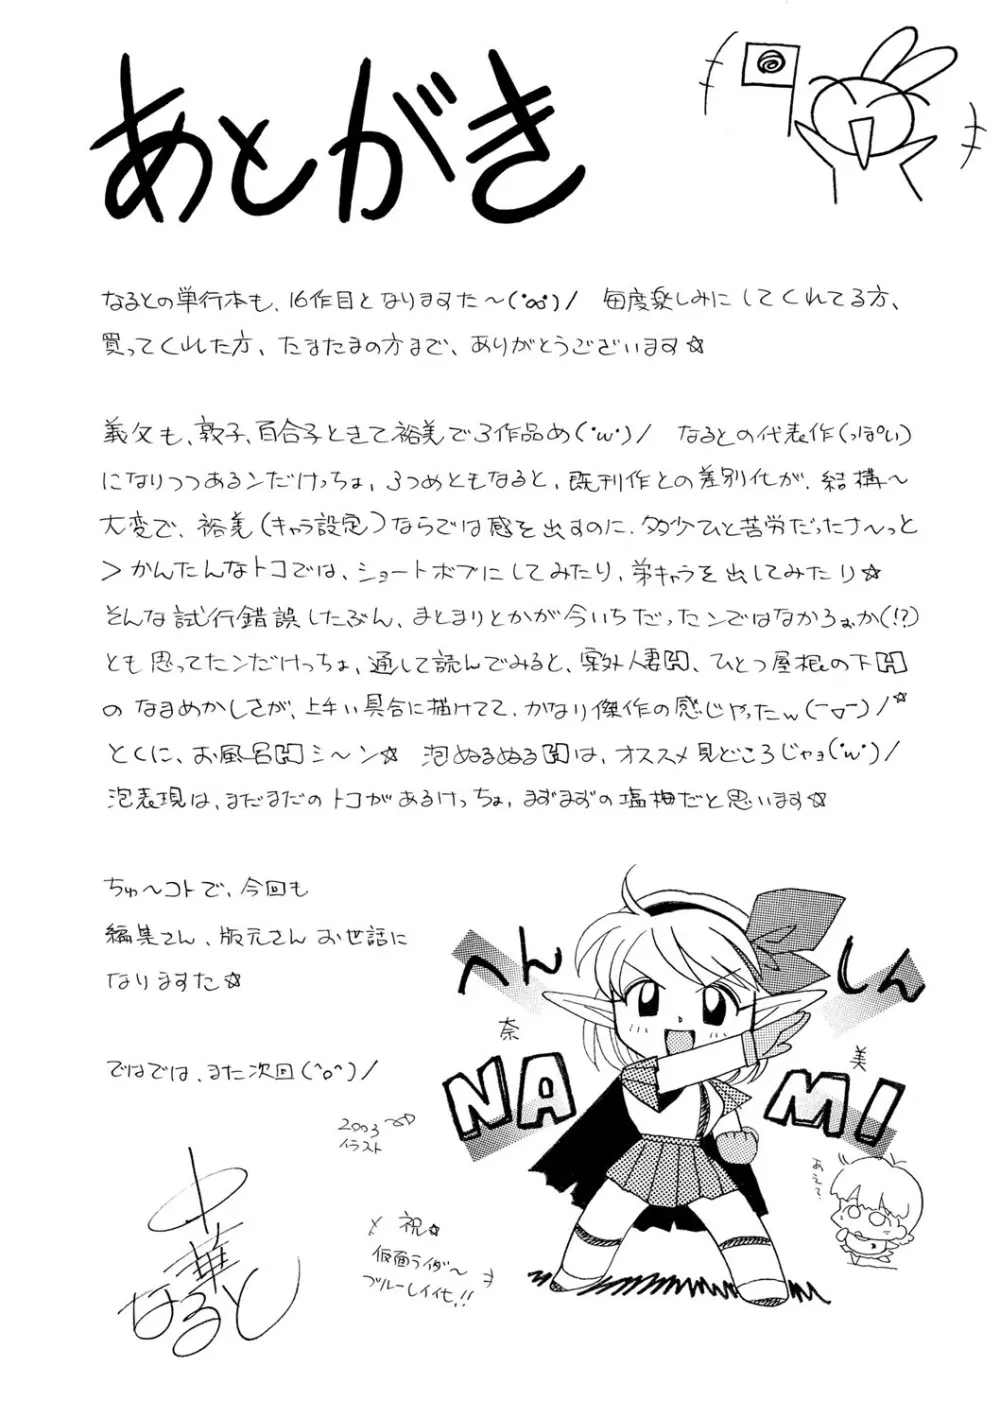 あとがき
なるとの単行本も、16作目となりますた〜(・ααﾟ)/ 毎度楽しみにしてくれてる方、
買ってくれた方、たまたまの方まで、ありがとうございます☆
義父も、敦子、百合子ときて裕美で3作品め(・w・)/ なるとの代表作(っぽい)
になりつつあるンだけっちょ、3つめともなると、既刊作との差別化が、結構〜
大変で、裕美(キャラ設定)ならでは感を出すのに、多少ひと苦労だったさ〜っと
>かんたんなトコでは、ショートボブにしてみたり、弟キャラを出してみたり☆
そんな試行錯誤したぶん、まとまりとかが今いちだったンではなかろぉか(!?)
とも思ってたンだけっちょ、通して読んでみると、案外人妻H、ひとつ屋根の下H
のなまめかしさが、上手い具合に描けてて、かなり傑作の感じやったw(ー▽ー)/☆
とくに、お風呂Hシ〜ン☆ 泡ぬるぬるHは、オススメ見どころじゃョ(・w・)/
泡表現は、まだまだのトコがあるけっちょ、まずまずの塩梅だと思います☆
ちゅ〜コトで、今回も
編集さん、版元さんお世話に
なりますた☆
ではでは、また次回(^o^)/
へん
しん
奈
美
NA
MI
2003
イラスト
あえて?
祝☆
仮面ライダ〜
ブルーレイ化!!
中華
なると